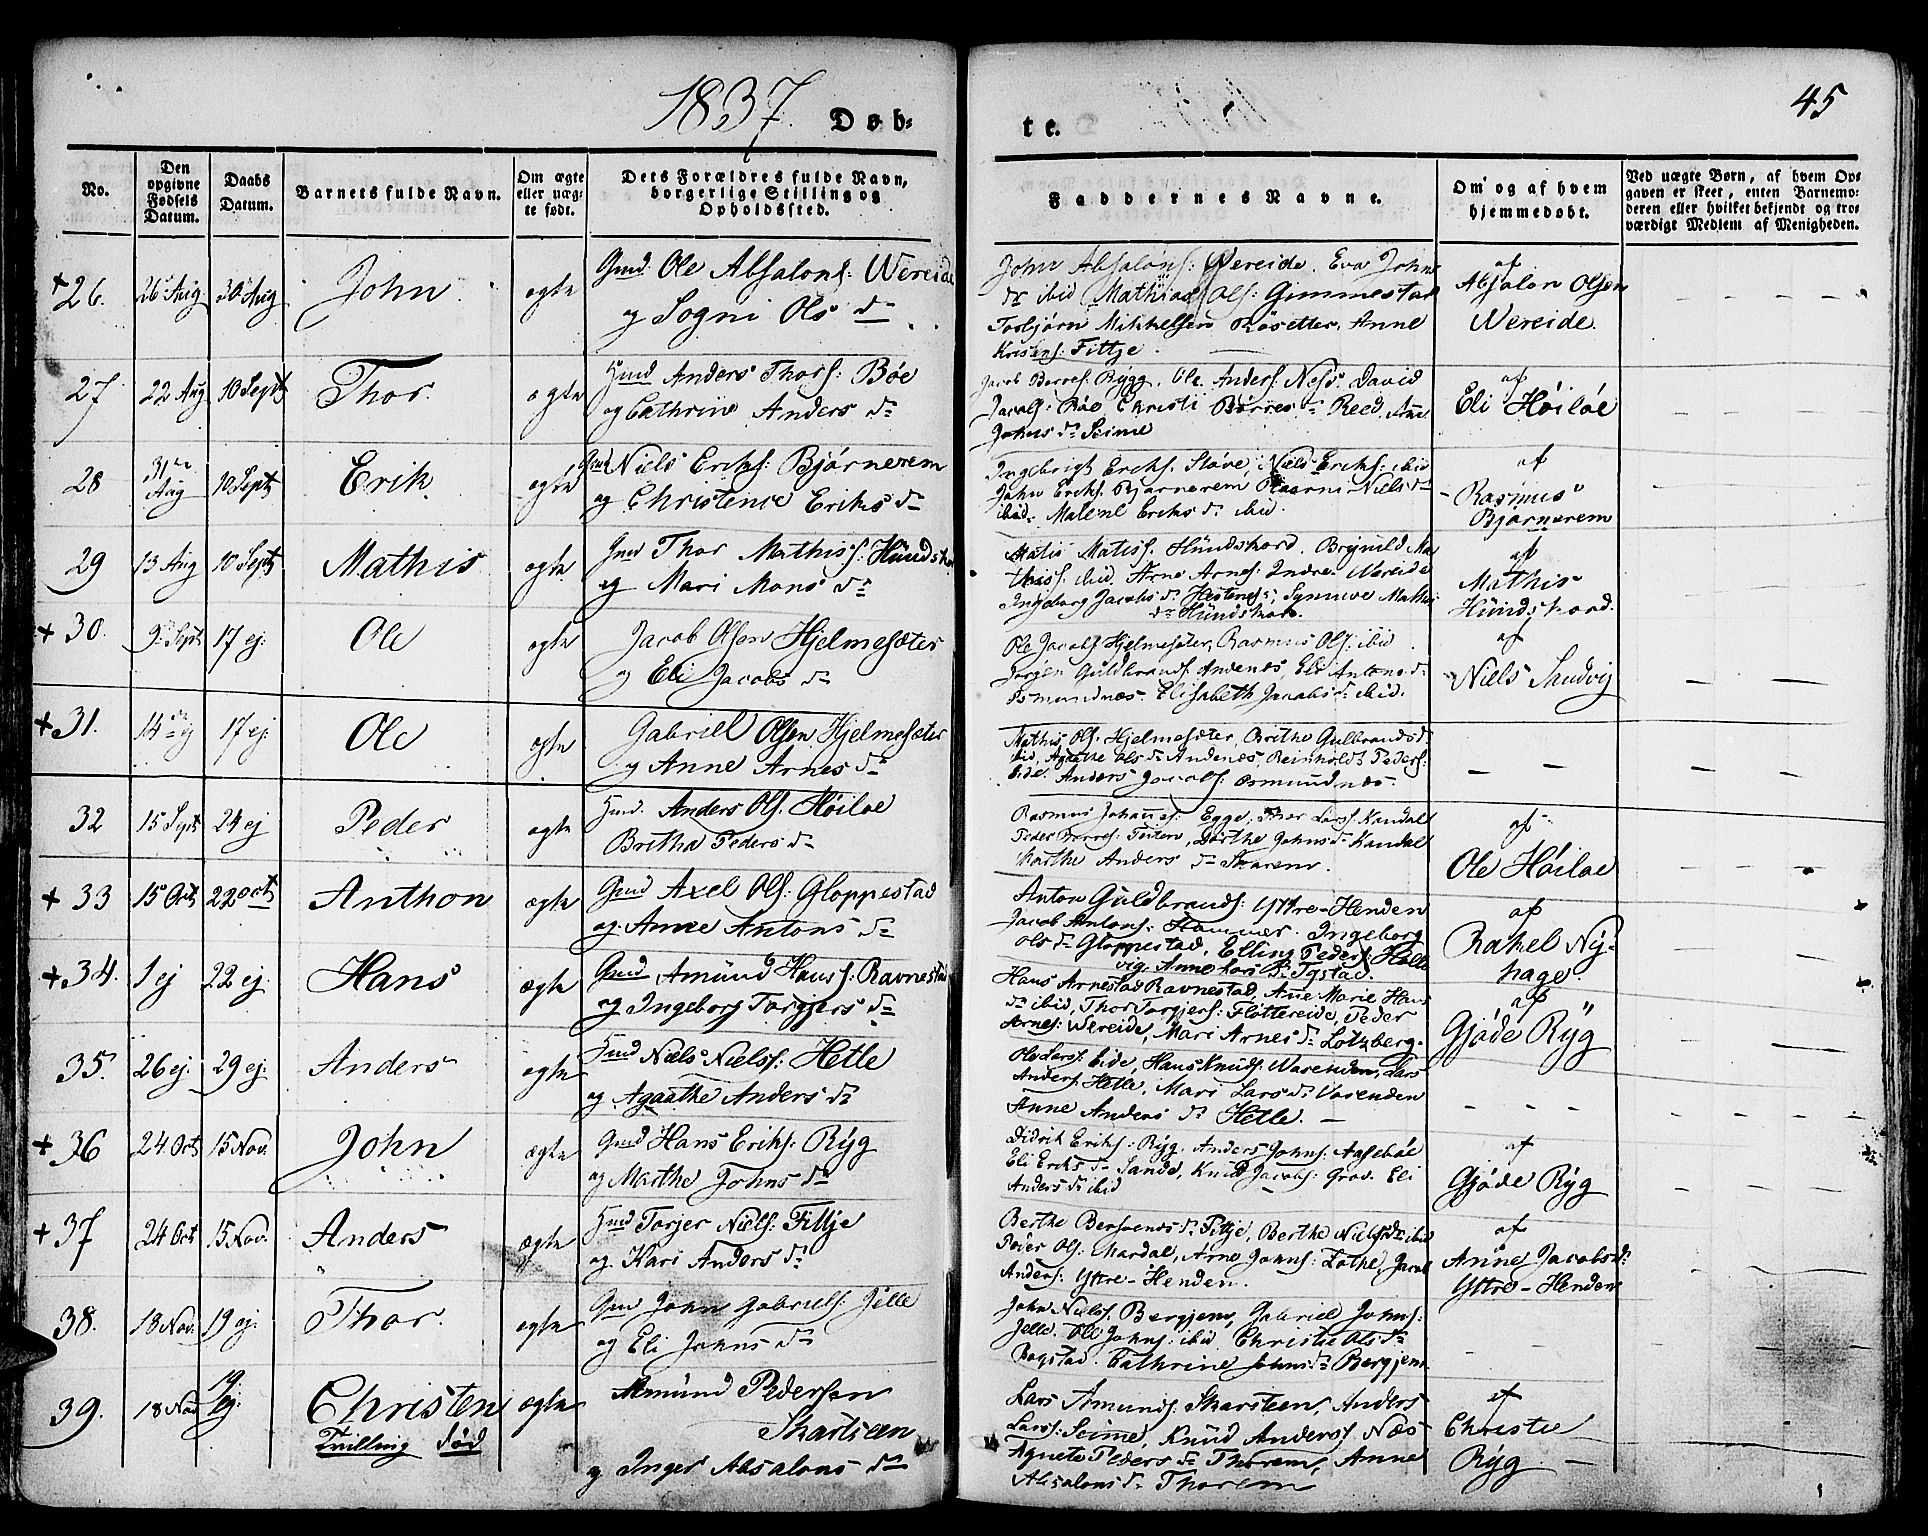 1837. Døb-
te.
45
No.
Den opgivne Fødsels Datum.
Daabs Datum.
Barnets fulde Navn.
Om ægte eller uægte født.
Dets Forældres fulde Navn, borgerlige Stilling og Opholdssted.
Faddernes Navne.
Om og af hvem hjemmedøbt.
Ved uægte Børn, af hvem Opgaven er skeet, enten Barnemoderen eller hvilket bekjendt og troværdigt Medlem af Menigheden.
+ 26. 26 Aug 30 Aug John ægte
Gmd. Ole Absalons: Wereide
og Sogni Ols dr
John Absalons: Wereide, Eva Johns
dr ibid Mathias Ols: Gimmestad
Torbjørn Mikkelsen Rosetter, Anne
Kristens: Fittje.
af
Absalon Olsen
Wereide.
27 22 Aug 10 Sept Thor. ægte
Hmd Anders Thors: Bøe
og Cathrine Anders dr
Jacob Børres: Rygg, Ole Anders: Ness, David
Jacobs: Bøe Christi Børres dr Reed, Anne
Johns dr Seime
af
Eli Høiløe
28 31te Aug 10 Sept Erik ægte
Gmd Niels Eriks: Bjørnerem
og Christence Eriks dr
Ingebrigt Eriks. Støve, Niels Eriks: ibid
John Eriks. Bjørnerem Niels dr
ibid. Malene Eriks dr ibid.
af
Rasmus
Bjørnerem
29 13 Aug 10 Sept Mathis ægte
Gmd Thor Mathiss: Hundskor
og Mari Mons dr
Matis Matiss. Hundskord. Brynild Ma
thiss: ibid. Arne Arnes: Indre-Wereide
Ingeborg Jacobs dr Hestenes, Synneve Mathis
dr Hundskor.
af
Mathis
Hundskord.
+ 30. 9 Sept 17 ej. Ole ægte
Jacob Olsen Hjelmesæter
og Eli Jacobs dr
Ole Jacobs Hjelmesæter, Rasmus Ols: ibid
Jørgen Guldbrands: Andenes, Eli Antons dr
Osmundnæs. Elisabeth Jacobs dr ibid.
af
Niels Sandvig
+ 31. 14 ej 17 ej. Ole ægte
Gabriel Olsen Hjelmesæter
og Anne Arnes dr
Mathis Ols: Hjelmesæter, Brithe Gulbrands dr
ibid, Agathe Ols dr Andenes, Reinholdt Peders:
ibid. Anders Jacobs: Osmundnæs.
32 15 Sept 24 ej Peder ægte
Hmd. Anders Ols: Høiløe
Britha Peders dr
Rasmus Johannes: Egge, Thor Lars: Kandal
Peder Børres: Teiten, Dorthe Johns dr Kandal
Marthe Anders dr Skarem.
af
Ole Høiløe
+ 33 15 Oct 22 Oct Anthon ægte
Gmd Axel Ols: Gloppestad
og Anne Antons dr
Anton Guldbrands: Yttre-Henden
Jacob Antons: Hammer. Ingeborg
Ols dr Gloppestad, Elling Peders: Helle
vig. Anne Lars dr Tystad.
af
Rakel Ny-
hage.
+ 34. 1 ej 22 ej. Hans ægte
Gmd Amund Hans: Ravnestad
og Ingeborg Torgjers dr
Hans Arnestad Ravnestad, Anne Marie Hans
dr ibid, Thor Torgjers: Fløttereide, Peder
Arnes: Wereide, Mari Arnes dr Lotzberg.
af
Gjøde Ryg
35. 26 ej. 29 ej. Anders ægte
Hmd Niels Niels: Hetle
og Agaathe Anders dr
Ole Lars: Eide, Hans Knuds: Warenden, Lars
Anders. Hetle, Mari Lars dr Varenden
Anne Anders dr Hetle.
+ 36 24 Oct 15 Nov. John ægte
Gmd Hans Eriks: Ryg
og Marthe Johns dr
Didrik Eriks: Ryg. Anders Johns: Aasebøe
Eli Eriks dr Sande, Knud Jacobs: Grov. Eli
Anders dr ibid
af
Gjøde Ryg
+ 37 24 Oct 15 Nov. Anders ægte
Hmd Torjer Niels: Fittje
og Kari Anders dr
Berthe Bersvens dr Fittje, Berthe Niels dr ibid
Peder Ols: Mardal, Arne Johns: Lothe, Jacob
Anders: Yttre-Henden.
af
Anne Jacobs dr
Yttre-Henden
38. 18 Nov. 19 ej. Thor. ægte
Gmd John Gabriels: Jelle
og Eli Johns dr
John Niels: Bergjem, Gabriel Johns:
Jelle. Ole Johns: ibid Christie Ols dr
Bogstad. Cathrine Johns dr Bergjem
39. 18 Nov 19 ej. Christen ægte
Tvilling død
Amund Pedersen
Skarsteen
og Inger Absalons dr
Lars Amunds: Skarsteen, Anders
Lars: Seime, Knud Anders: Næs
Agnete Peders dr Thorem, Anne
Absalons dr Thorem
af
Christie
Ryg.